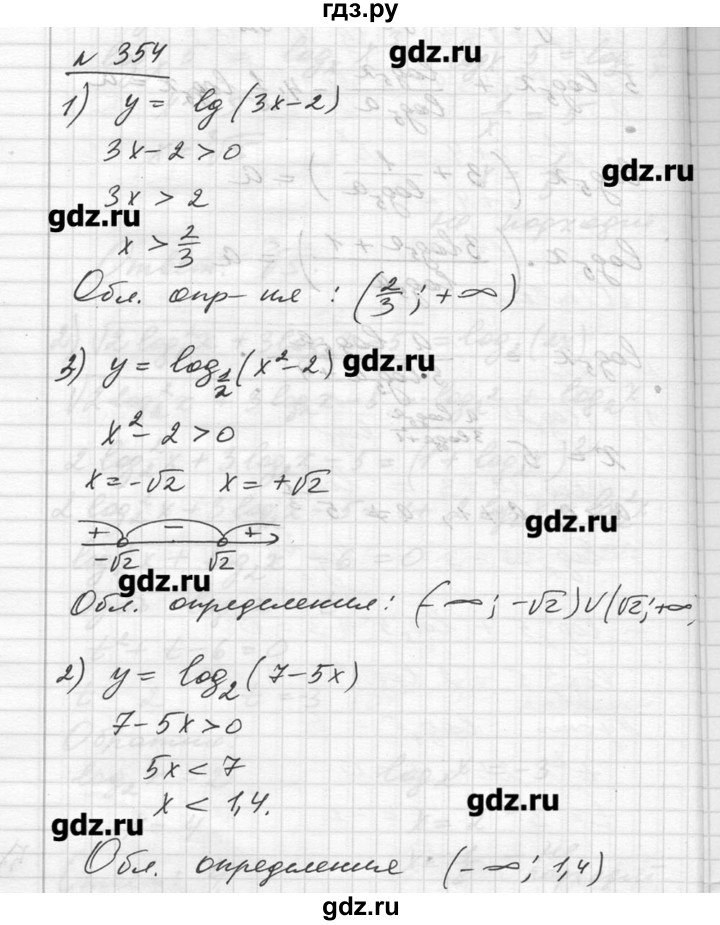 гдз.ру
№ 354
gdz.ru
1) y = lg(3x-2)
3x-2>0
gdz.ru
3x > 2
gdz.ru
x > 2/3
Обл. опр-ния : (2/3; +∞)
3) y = log_{1/2}(x²-2)
gdz.ru
x²-2>0
x=-√2 x=+√2
gdz.ru
+ − +
-√2 √2
gdz.ru
Обл. определения: (-∞; -√2)∪(√2; +∞)
2) y = log₂(7-5x)
7-5x>0
5x < 7
x < 1,4.
gdz.ru
gdz.ru
Обл. определения (-∞; 1,4)
gdz.ru